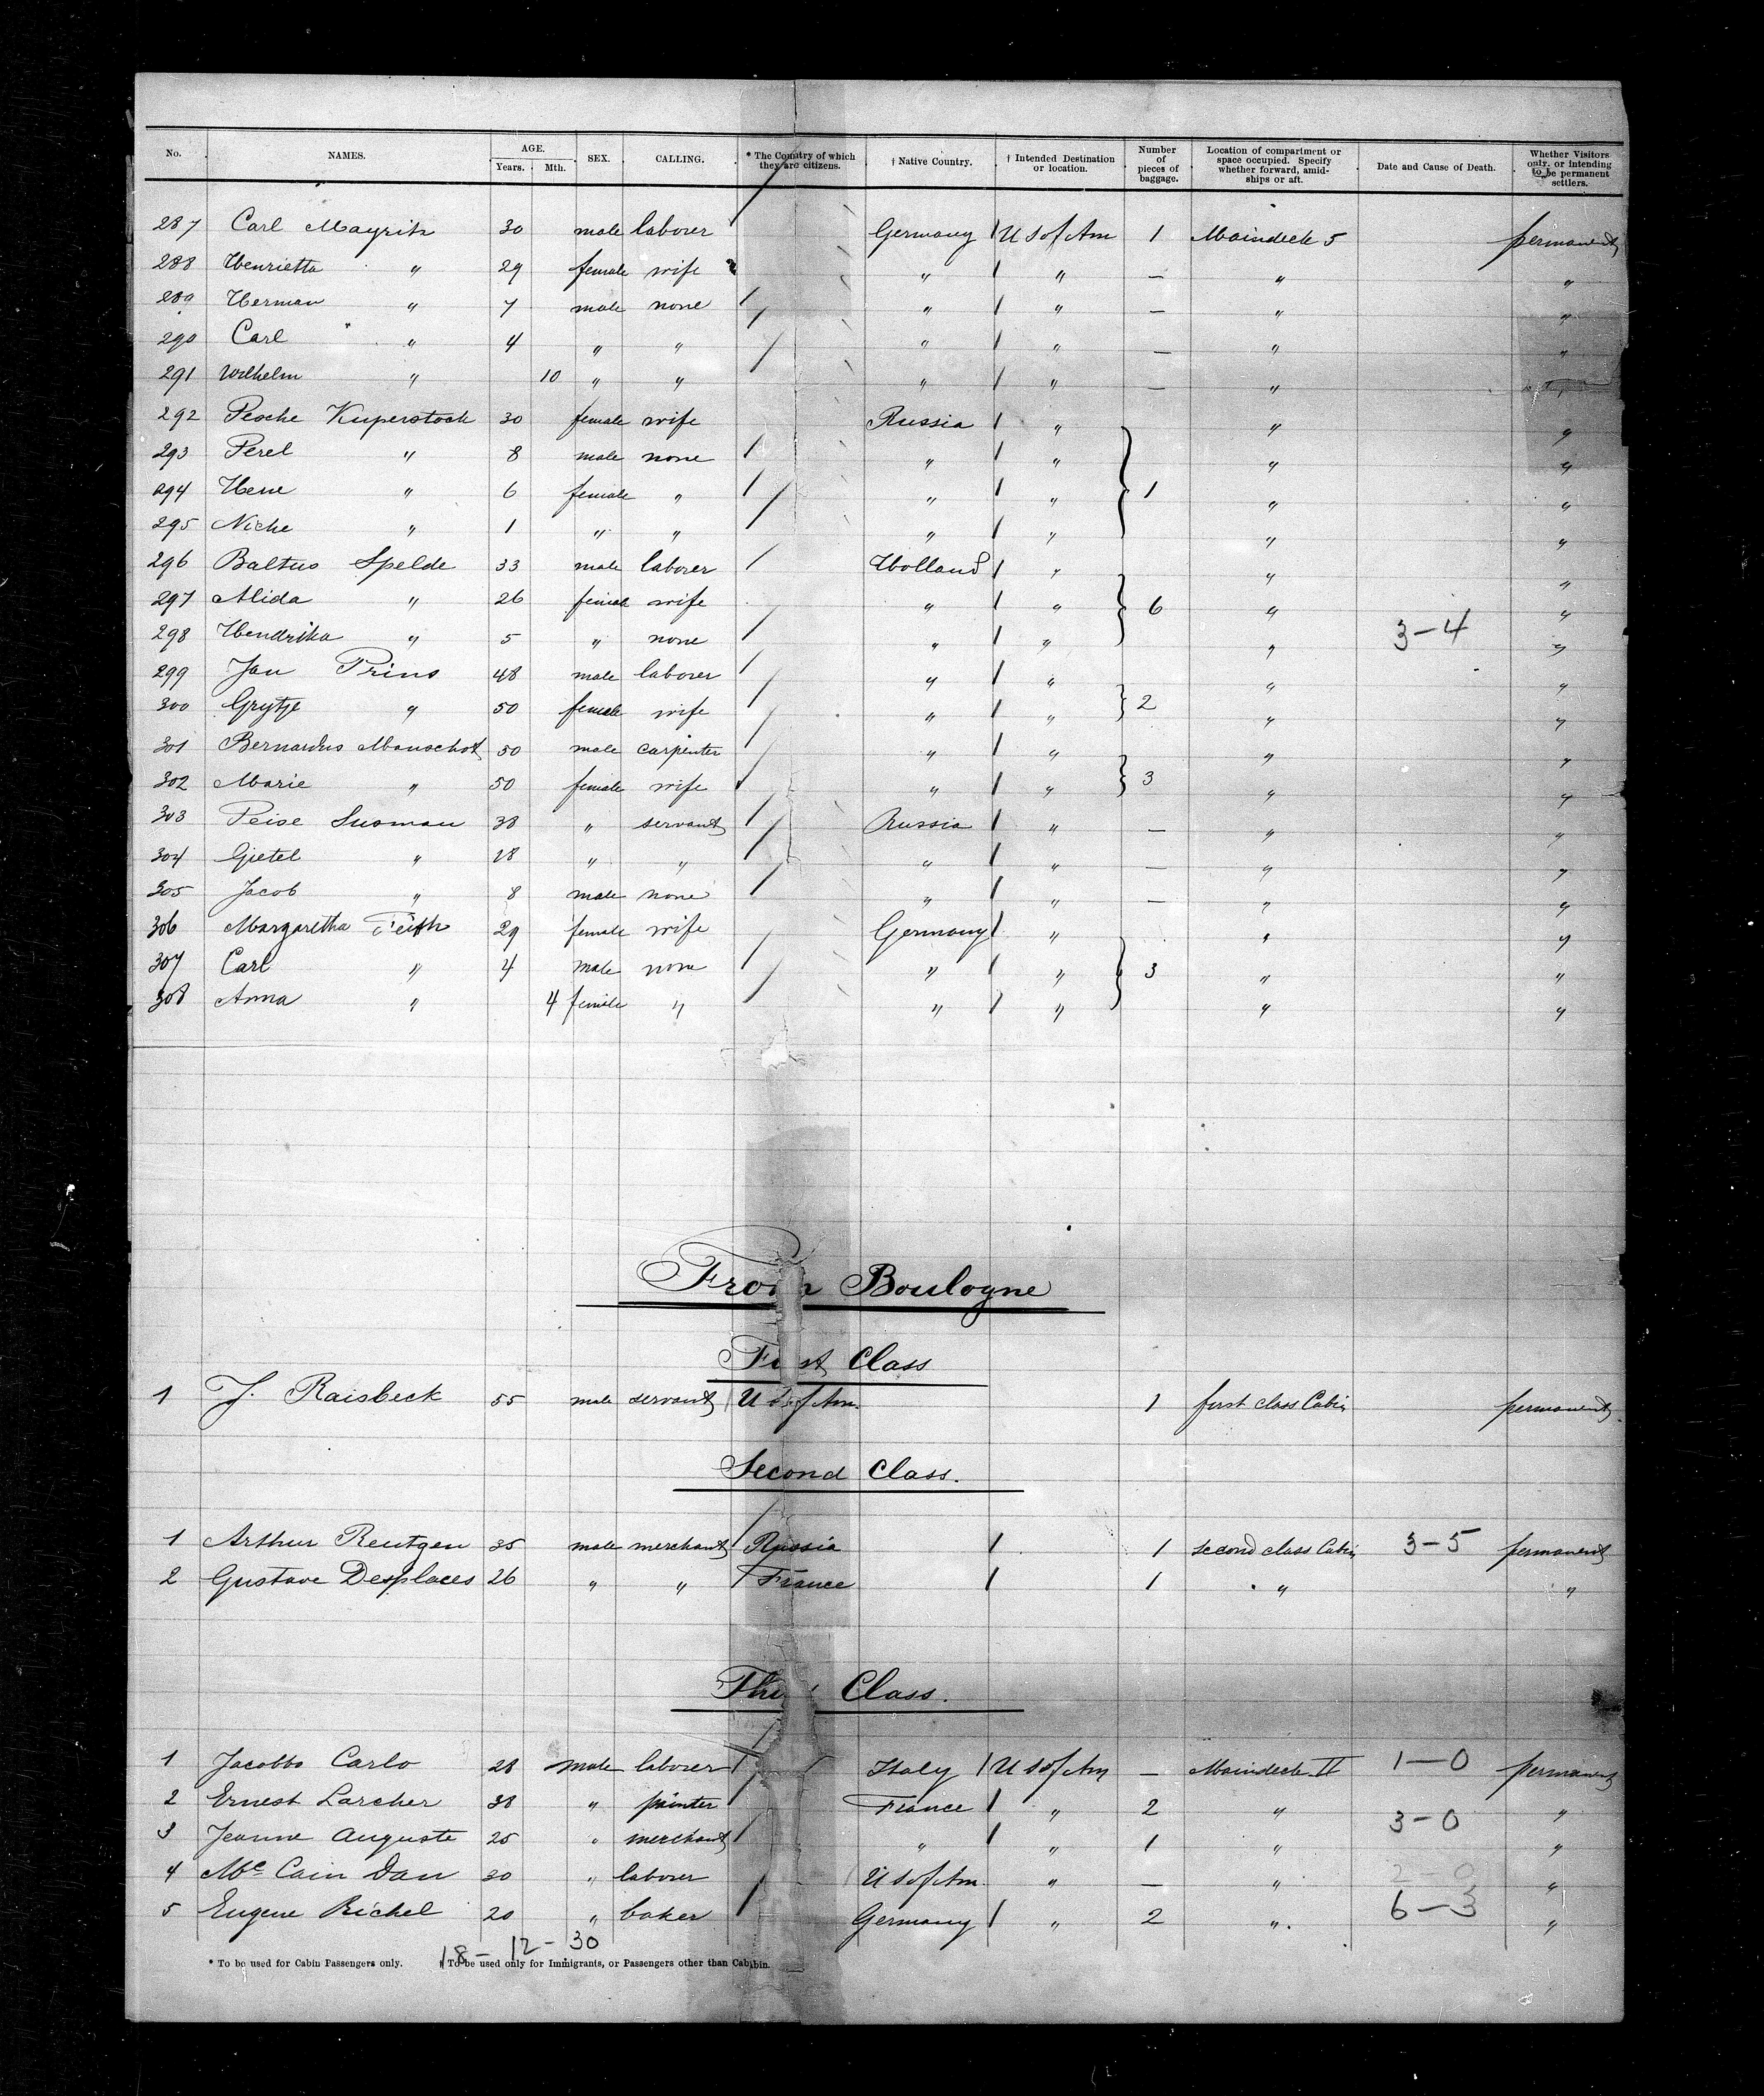 No. NAMES. AGE. Years. Mth. SEX. CALLING. * The Country of which they are citizens. † Native Country. † Intended Destination or location. Number of pieces of baggage. Location of compartment or space occupied. Specify whether forward, amidships or aft. Date and Cause of Death. Whether Visitors only, or intending to be permanent settlers.
287 Carl Mayritz 30 male laborer Germany U S of Am 1 Maindeck 5 permanent
288 Henrietta " 29 female wife " " — " "
289 Herman " 7 male none " " — " "
290 Carl " 4 " " " " — " "
291 Wilhelm " 10 " " " " — " "
292 Pesche Kuperstock 30 female wife Russia " " "
293 Perel " 8 male none " " " "
294 Hene " 6 female " " " 1 " "
295 Niche " 1 " " " " " "
296 Baltus Spelde 33 male laborer Holland " " "
297 Alida " 26 female wife " " 6 " "
298 Hendrika " 5 " none " " " 3-4 "
299 Jan Prins 48 male laborer " " " "
300 Grytje " 50 female wife " " 2 " "
301 Bernardus Manschot 50 male carpenter " " " "
302 Marie " 50 female wife " " 3 " "
303 Peise Susman 38 " servant Russia " — " "
304 Gietel " 18 " " " " — " "
305 Jacob " 8 male none " " — " "
306 Margaretha 29 female wife Germany " " "
307 Carl " 4 male none " " 3 " "
308 Anna " 4 female " " " " "
From Boulogne
First Class
1 J. Raisbeck 55 male servant U S of Am. 1 first class Cabin permanent
Second Class.
1 Arthur Reutgen 35 male merchant Russia 1 second class Cabin 3-5 permanent
2 Gustave Desplaces 26 " " France 1 " "
Third Class.
1 Jacobbo Carlo 28 male laborer Italy U S of Am — Maindeck II 1-0 permanent
2 Ernest Larcher 38 " painter France " 2 " "
3 Jeanne Auguste 25 " merchant " " 1 " 3-0 "
4 Mc Cain Dan 30 " laborer U S of Am. " — " 2-0 "
5 Eugene Bichel 20 " baker Germany " 2 " 6-3 "
18-12-30
* To be used for Cabin Passengers only. † To be used only for Immigrants, or Passengers other than Cabin.